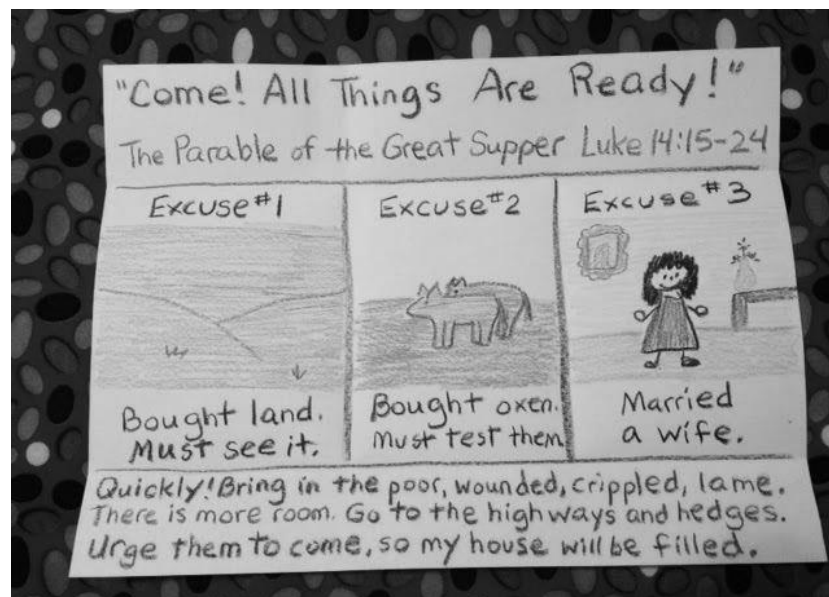 "Come! All Things Are Ready!"
The Parable of the Great Supper Luke 14:15-24
Excuse #1
Bought land.
Must see it.
Excuse #2
Bought oxen.
Must test them
Excuse #3
Married
a wife.
Quickly! Bring in the poor, wounded, crippled, lame.
There is more room. Go to the highways and hedges.
Urge them to come, so my house will be filled.